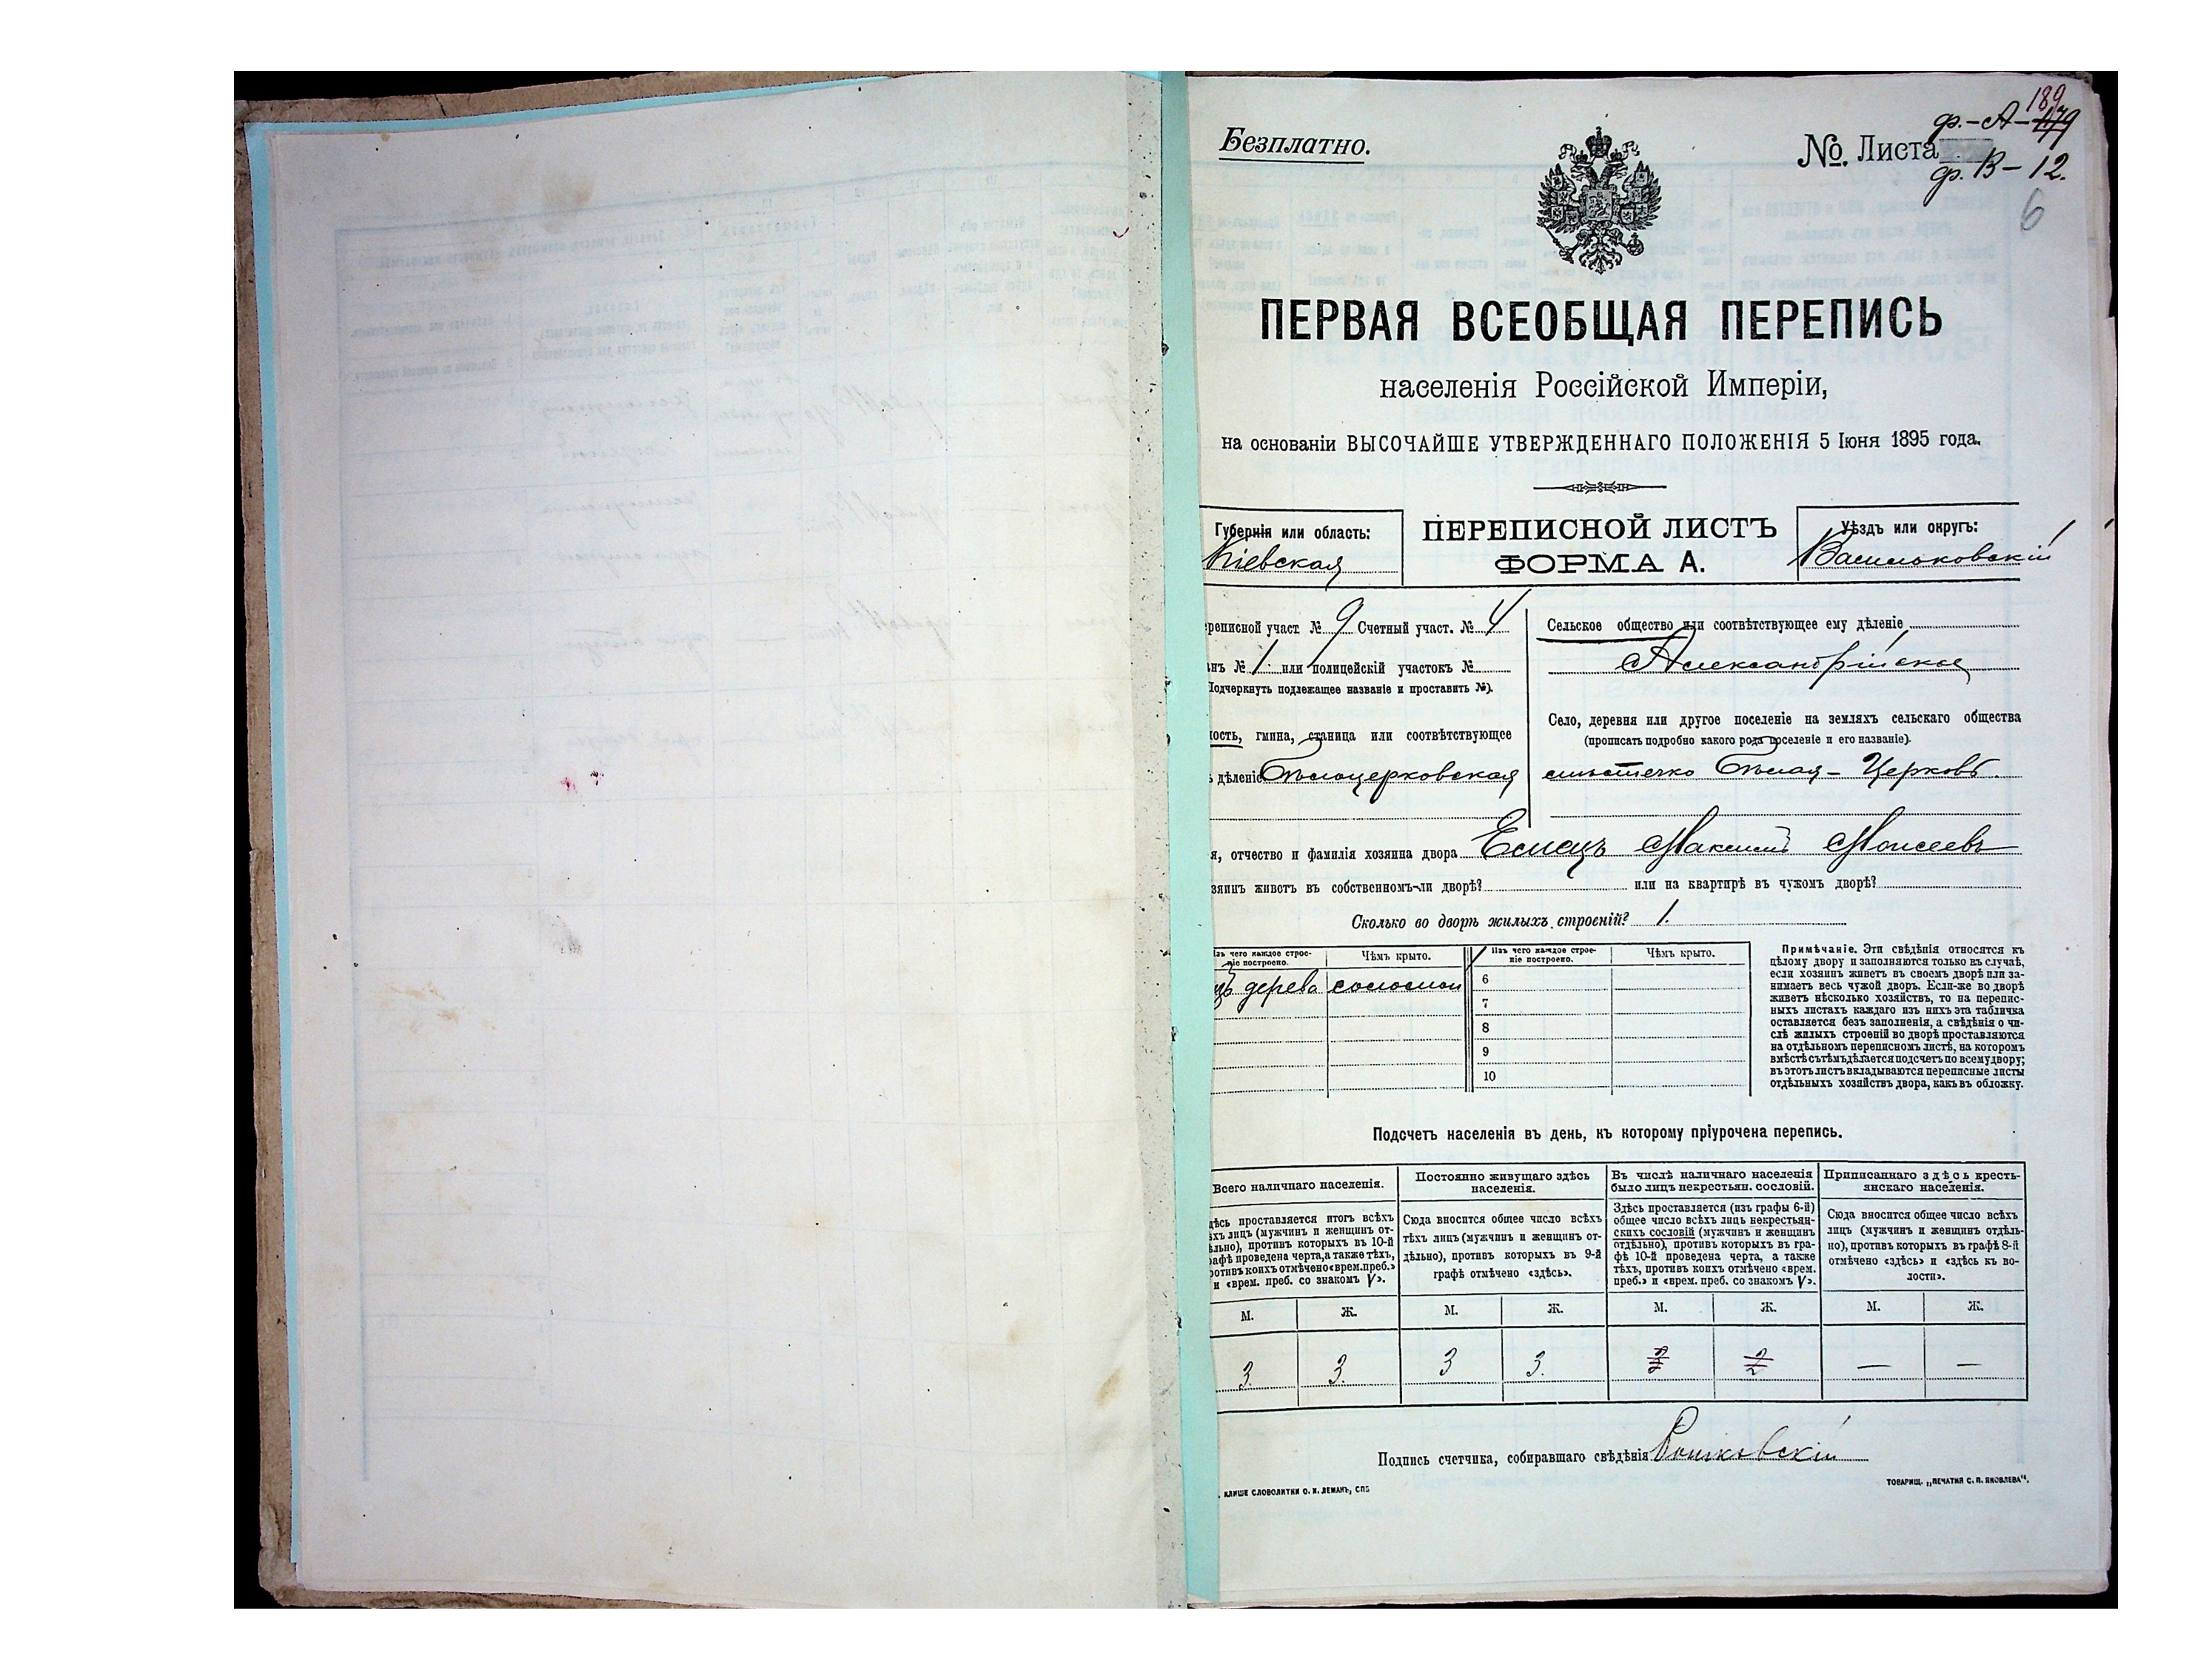 189
ф.-А-479
Безплатно.
№ Листа
ф. В-12.
6
ПЕРВАЯ ВСЕОБЩАЯ ПЕРЕПИСЬ
населенія Россійской Имперіи,
на основаніи ВЫСОЧАЙШЕ УТВЕРЖДЕННАГО ПОЛОЖЕНІЯ 5 Іюня 1895 года.
Губернія или область:
Кіевская
ПЕРЕПИСНОЙ ЛИСТЪ
ФОРМА А.
Уѣздъ или округъ:
Васильковскій
реписной участ. № 9 Счетный участ. № 4
нъ № 1 или полицейскій участокъ №
Подчеркнуть подлежащее названіе и проставить №).
ость, гмина, станица или соотвѣтствующее
ъ дѣленіе Бѣлоцерковская
Сельское общество или соотвѣтствующее ему дѣленіе
Александрійское
Село, деревня или другое поселеніе на земляхъ сельскаго общества
(прописать подробно какого рода поселеніе и его названіе).
мѣстечко Бѣлая-Церковь.
я, отчество и фамилія хозяина двора Емецъ Максимъ Моисеевъ
зяинъ живетъ въ собственномъ-ли дворѣ? или на квартирѣ въ чужомъ дворѣ?
Сколько во дворѣ жилыхъ строеній? 1.
Изъ чего каждое строе-
ніе построено.
Чѣмъ крыто.
Изъ чего каждое строе-
ніе построено.
Чѣмъ крыто.
изъ дерева соломой
6
7
8
9
10
Примѣчаніе. Эти свѣдѣнія относятся къ
цѣлому двору и заполняются только въ случаѣ,
если хозяинъ живетъ въ своемъ дворѣ или за-
нимаетъ весь чужой дворъ. Если-же во дворѣ
живетъ нѣсколько хозяйствъ, то на перепис-
ныхъ листахъ каждаго изъ нихъ эта табличка
оставляется безъ заполненія, а свѣдѣнія о чи-
слѣ жилыхъ строеній во дворѣ проставляются
на отдѣльномъ переписномъ листѣ, на которомъ
вмѣстѣ съ тѣмъ дѣлается подсчетъ по всему двору;
въ этотъ листъ вкладываются переписные листы
отдѣльныхъ хозяйствъ двора, какъ въ обложку.
Подсчетъ населенія въ день, къ которому пріурочена перепись.
Всего наличнаго населенія.
Постоянно живущаго здѣсь
населенія.
Въ числѣ наличнаго населенія
было лицъ некрестьян. сословій.
Приписаннаго здѣсь кресть-
янскаго населенія.
дѣсь проставляется итогъ всѣхъ
ѣхъ лицъ (мужчинъ и женщинъ от-
ѣльно), противъ которыхъ въ 10-й
рафѣ проведена черта, а также тѣхъ,
ротивъ коихъ отмѣчено «врем. преб.»
и «врем. преб. со знакомъ V».
Сюда вносится общее число всѣхъ
тѣхъ лицъ (мужчинъ и женщинъ от-
дѣльно), противъ которыхъ въ 9-й
графѣ отмѣчено «здѣсь».
Здѣсь проставляется (изъ графы 6-й)
общее число всѣхъ лицъ некрестьян-
скихъ сословій (мужчинъ и женщинъ
отдѣльно), противъ которыхъ въ гра-
фѣ 10-й проведена черта, а также
тѣхъ, противъ коихъ отмѣчено «врем.
преб.» и «врем. преб. со знакомъ V».
Сюда вносится общее число всѣхъ
лицъ (мужчинъ и женщинъ отдѣль-
но), противъ которыхъ въ графѣ 8-й
отмѣчено «здѣсь» и «здѣсь къ во-
лости».
М. Ж. М. Ж. М. Ж. М. Ж.
3. 3. 3 3. — —
Подпись счетчика, собиравшаго свѣдѣнія
КЛИШЕ СЛОВОЛИТНИ О. И. ЛЕМАНЪ, СПБ
ТОВАРИЩ. „ПЕЧАТНЯ С. П. ЯКОВЛЕВА“.